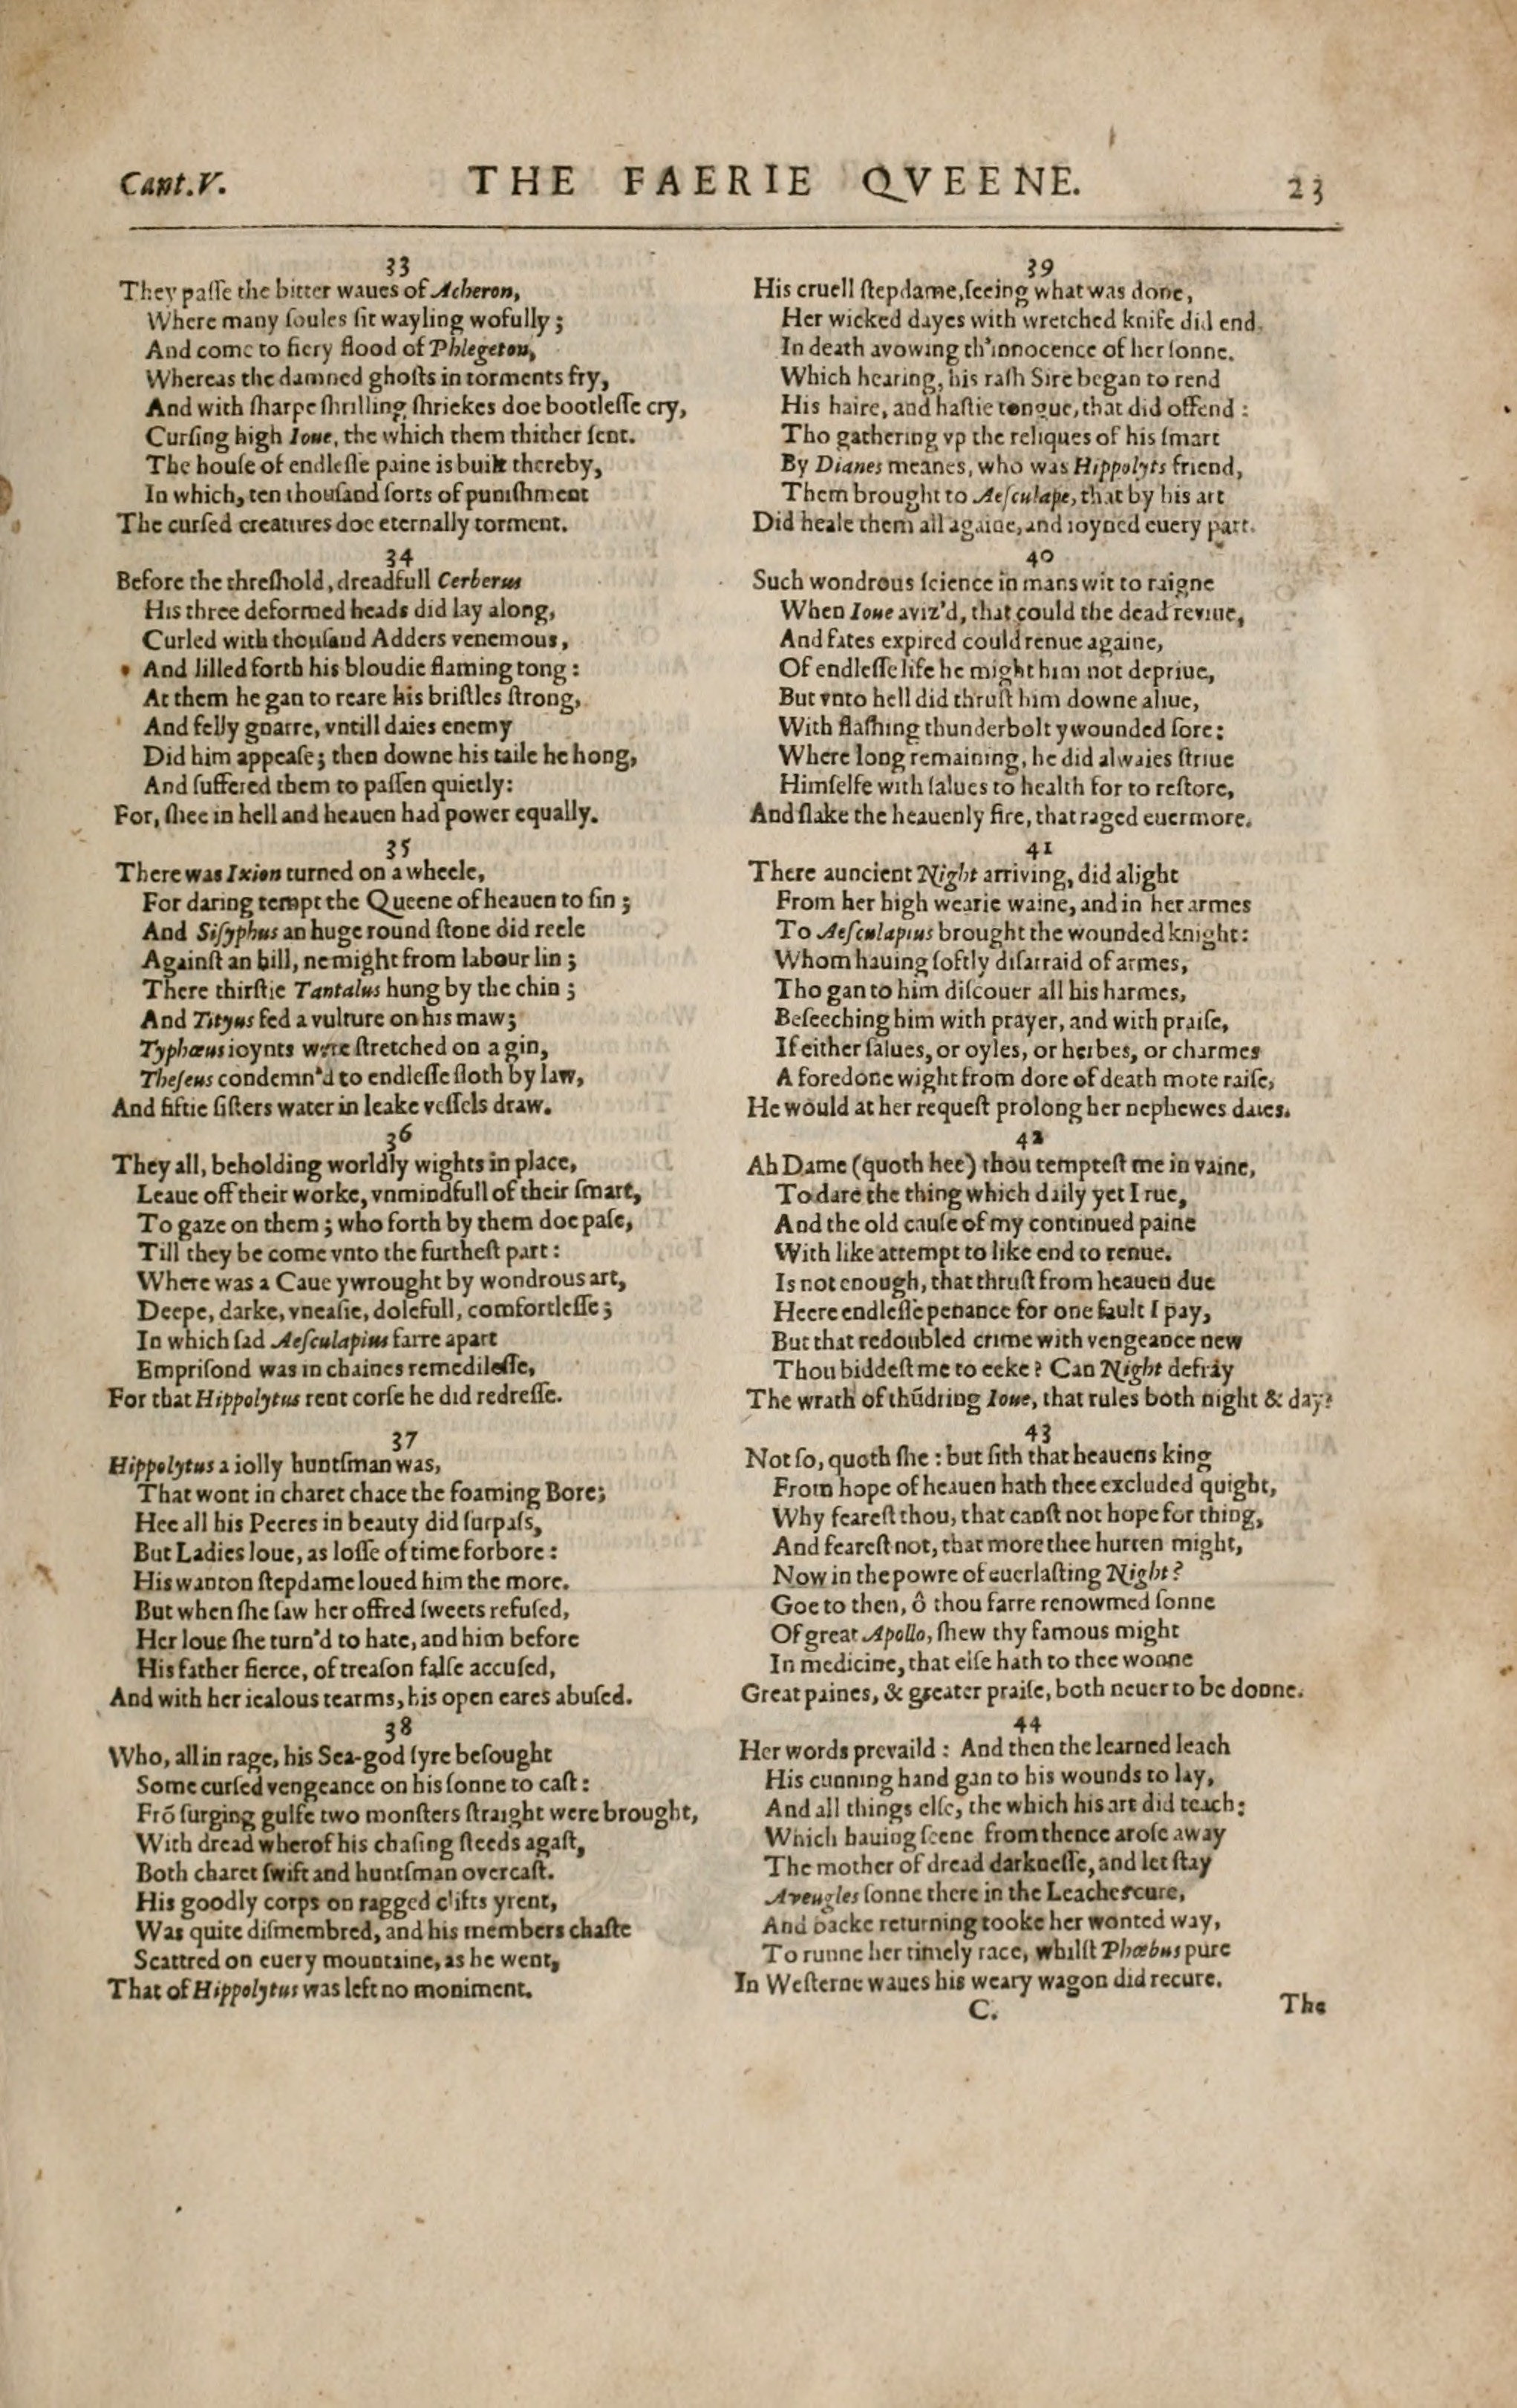 Cant.V. THE FAERIE QVEENE. 23
33
They paſſe the bitter waues of Acheron,
Where many ſoules ſit wayling wofully;
And come to fiery flood of Phlegeton,
Whereas the damned ghoſts in torments fry,
And with ſharpe ſhrilling ſhriekes doe bootleſſe cry,
Curſing high Ioue, the which them thither ſent.
The houſe of endleſſe paine is built thereby,
In which, ten thouſand ſorts of puniſhment
The curſed creatures doe eternally torment.
34
Before the threſhold, dreadfull Cerberus
His three deformed heads did lay along,
Curled with thouſand Adders venemous,
And lilled forth his bloudie flaming tong:
At them he gan to reare his briſtles ſtrong,
And felly gnarre, vntill daies enemy
Did him appeaſe; then downe his taile he hong,
And ſuffered them to paſſen quietly:
For, ſhee in hell and heauen had power equally.
35
There was Ixion turned on a wheele,
For daring tempt the Queene of heauen to ſin;
And Siſyphus an huge round ſtone did reele
Againſt an hill, ne might from labour lin;
There thirſtie Tantalus hung by the chin;
And Tityus fed a vulture on his maw;
Typhœus ioynts were ſtretched on a gin,
Theſeus condemn'd to endleſſe ſloth by law,
And fiftie ſiſters water in leake veſſels draw.
36
They all, beholding worldly wights in place,
Leaue off their worke, vnmindfull of their ſmart,
To gaze on them; who forth by them doe paſe,
Till they be come vnto the furtheſt part:
Where was a Caue ywrought by wondrous art,
Deepe, darke, vneaſie, dolefull, comfortleſſe;
In which ſad Aeſculapius farre apart
Empriſond was in chaines remedileſſe,
For that Hippolytus rent corſe he did redreſſe.
37
Hippolytus a iolly huntſman was,
That wont in charet chace the foaming Bore;
Hee all his Peeres in beauty did ſurpaſs,
But Ladies loue, as loſſe of time forbore:
His wanton ſtepdame loued him the more.
But when ſhe ſaw her offred ſweets refuſed,
Her loue ſhe turn'd to hate, and him before
His father fierce, of treaſon falſe accuſed,
And with her iealous tearms, his open eares abuſed.
38
Who, all in rage, his Sea-god ſyre beſought
Some curſed vengeance on his ſonne to caſt:
Frõ ſurging gulfe two monſters ſtraight were brought,
With dread wherof his chaſing ſteeds agaſt,
Both charet ſwift and huntſman overcaſt.
His goodly corps on ragged clifts yrent,
Was quite diſmembred, and his members chaſte
Scattred on euery mountaine, as he went,
That of Hippolytus was left no moniment.
39
His cruell ſtepdame, ſeeing what was done,
Her wicked dayes with wretched knife did end.
In death avowing th'innocence of her ſonne.
Which hearing, his raſh Sire began to rend
His haire, and haſtie tongue, that did offend:
Tho gathering vp the reliques of his ſmart
By Dianes meanes, who was Hippolyts friend,
Them brought to Aeſculape, that by his art
Did heale them all againe, and ioyned euery part.
40
Such wondrous ſcience in mans wit to raigne
When Ioue aviz'd, that could the dead reviue,
And fates expired could renue againe,
Of endleſſe life he might him not depriue,
But vnto hell did thruſt him downe aliue,
With flaſhing thunderbolt ywounded ſore:
Where long remaining, he did alwaies ſtriue
Himſelfe with ſalues to health for to reſtore,
And ſlake the heauenly fire, that raged euermore.
41
There auncient Night arriving, did alight
From her high wearie waine, and in her armes
To Aeſculapius brought the wounded knight:
Whom hauing ſoftly diſarraid of armes,
Tho gan to him diſcouer all his harmes,
Beſeeching him with prayer, and with praiſe,
If either ſalues, or oyles, or herbes, or charmes
A foredone wight from dore of death mote raiſe,
He would at her requeſt prolong her nephewes daies.
42
Ah Dame (quoth hee) thou tempteſt me in vaine,
To dare the thing which daily yet I rue,
And the old cauſe of my continued paine
With like attempt to like end to renue.
Is not enough, that thruſt from heauen due
Heere endleſſe penance for one fault I pay,
But that redoubled crime with vengeance new
Thou biddeſt me to eeke? Can Night defray
The wrath of thũdring Ioue, that rules both night & day?
43
Not ſo, quoth ſhe: but ſith that heauens king
From hope of heauen hath thee excluded quight,
Why feareſt thou, that canſt not hope for thing,
And feareſt not, that more thee hurten might,
Now in the powre of euerlaſting Night?
Goe to then, ô thou farre renowmed ſonne
Of great Apollo, ſhew thy famous might
In medicine, that elſe hath to thee wonne
Great paines, & greater praiſe, both neuer to be donne.
44
Her words prevaild: And then the learned leach
His cunning hand gan to his wounds to lay,
And all things elſe, the which his art did teach:
Which hauing ſeene from thence aroſe away
The mother of dread darkneſſe, and let ſtay
Aveugles ſonne there in the Leaches cure,
And backe returning tooke her wonted way,
To runne her timely race, whilſt Phœbus pure
In Weſterne waues his weary wagon did recure.
C. The